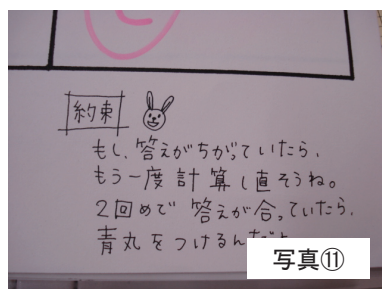 約束
もし、答えがちがっていたら、
もう一度計算し直そうね。
2回めで答えが合っていたら、
青丸をつけるんだよ
写真⑪